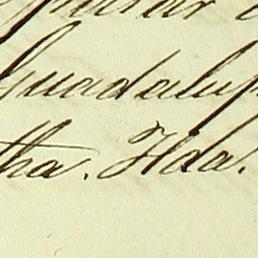 Guadalup
tha. Hda.